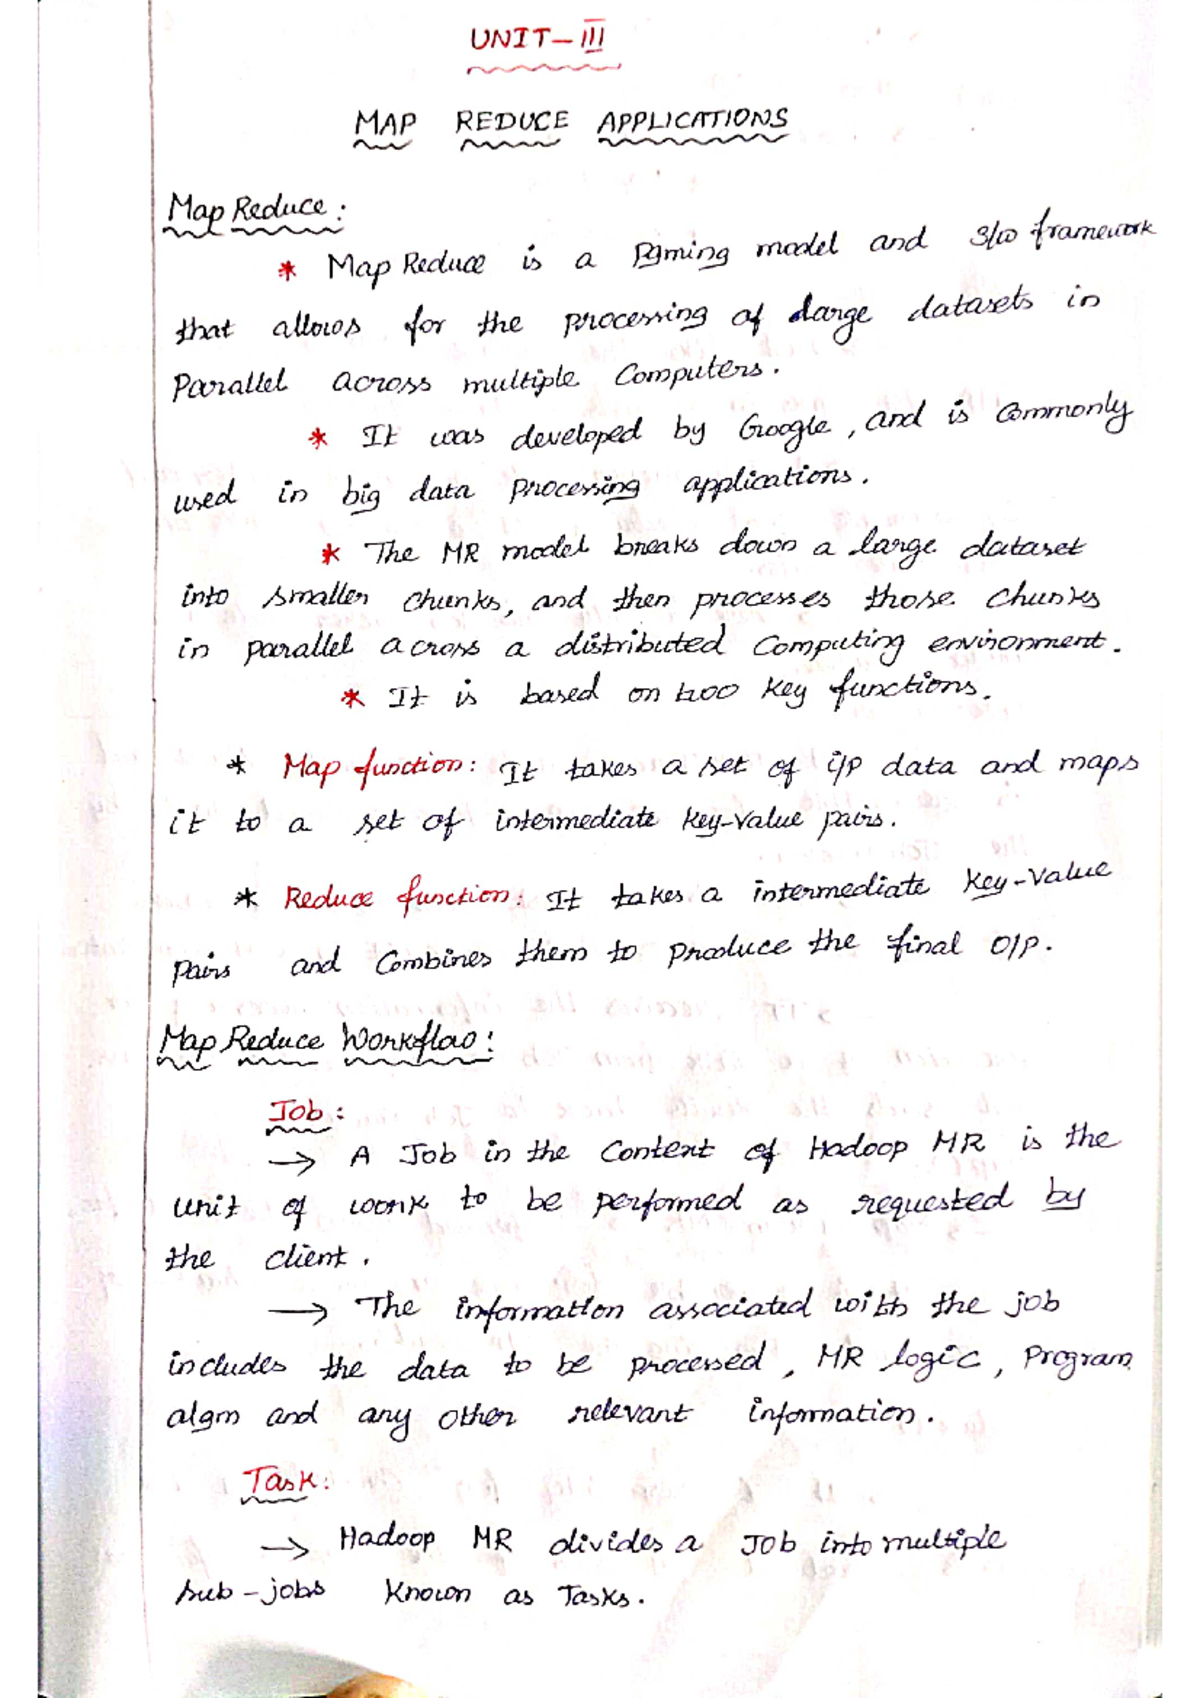 UNIT-III
MAP REDUCE APPLICATIONS
Map Reduce:
* Map Reduce is a Pgming model and S/w framework
that allows for the processing of large datasets in
Parallel across multiple Computers.
* It was developed by Google, and is commonly
used in big data processing applications.
* The MR model breaks down a large dataset
into smaller chunks, and then processes those chunks
in parallel across a distributed Computing environment.
* It is based on two key functions.
* Map function: It takes a set of i/p data and maps
it to a set of intermediate key-value pairs.
* Reduce function: It takes a intermediate key-value
pairs and Combines them to produce the final O/P.
Map Reduce Workflow:
Job:
→ A Job in the Content of Hadoop MR is the
unit of work to be performed as requested by
the client.
→ The information associated with the job
includes the data to be processed, MR logic, Program
algm and any other relevant information.
Task:
→ Hadoop MR divides a JOb into multiple
sub-jobs known as Tasks.